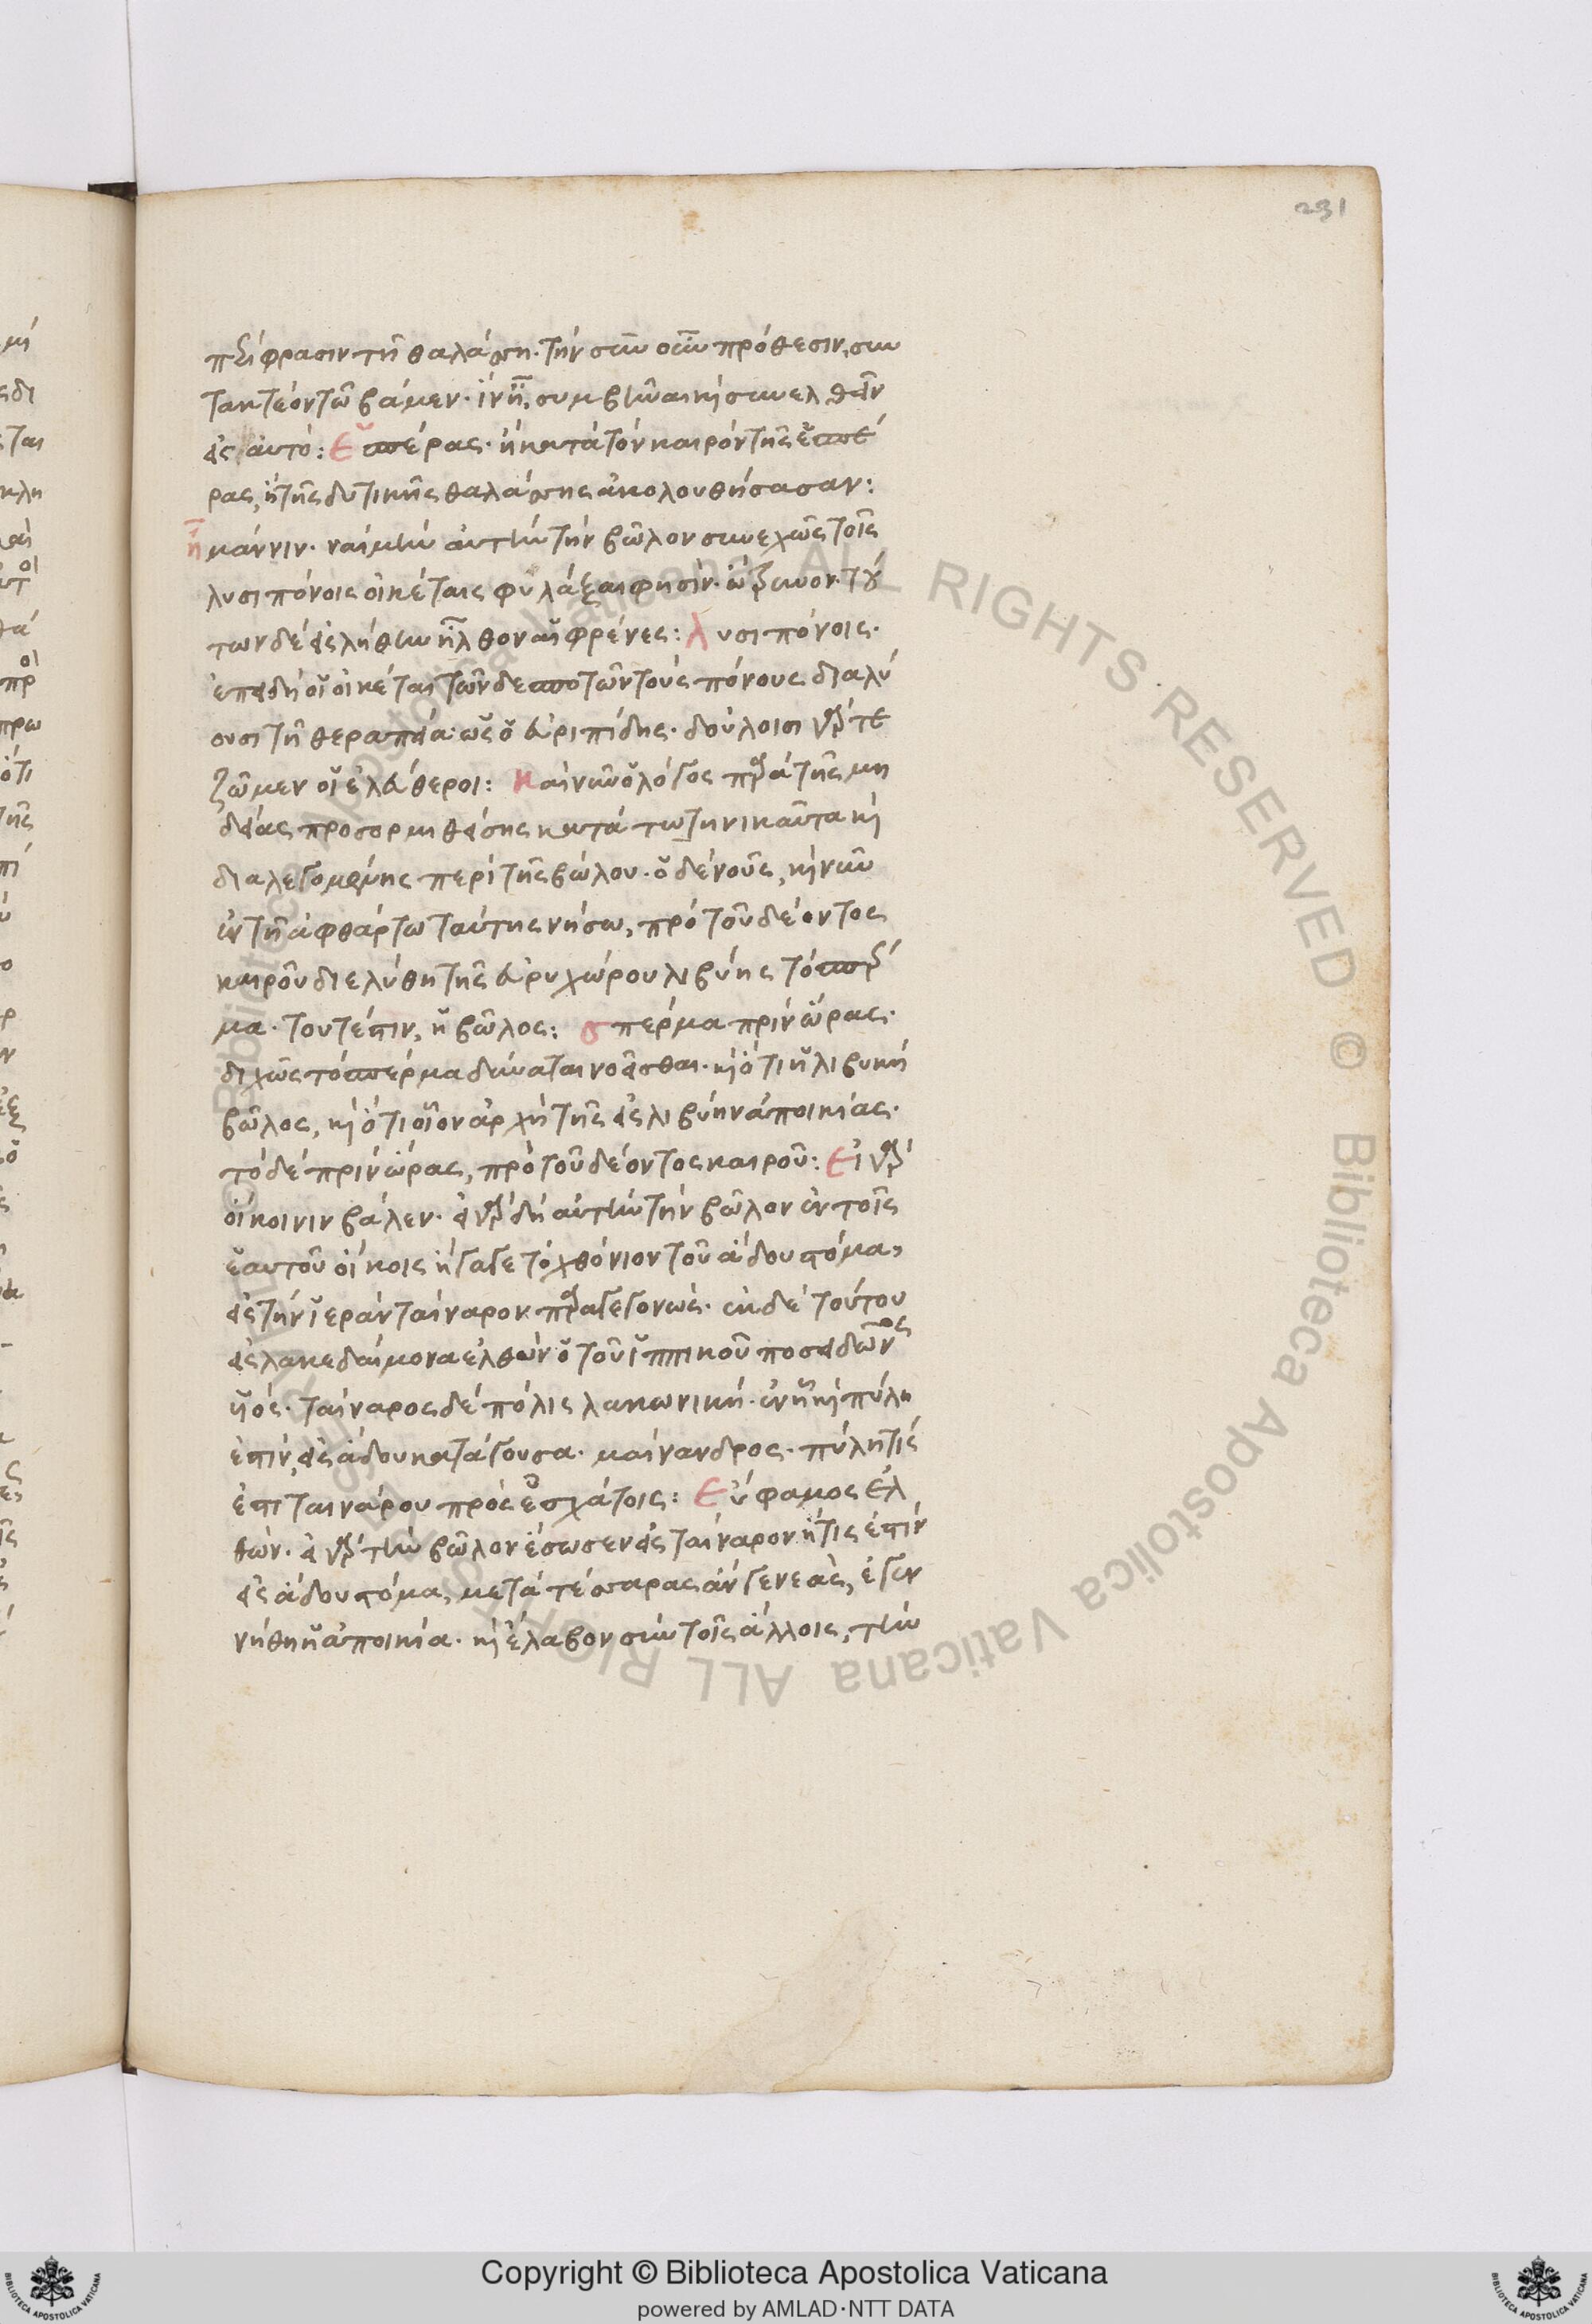 231
περίφρασιν τῆ θαλάσση. τὴν σὺν οὖν πρόθεσιν, συν
τακτέον τῶ βάμεν. ἵν' ἦ, συμβῶαι καὶ συνελθεῖν
εἰς αὐτό: Ἑσπέρας. ἢ κατὰ τὸν καιρὸν τῆς ἑσπέ
ρας, ἢ τῆς δυτικῆς θαλάσσης ἀκολουθήσασαν:
Ἦ μάν νιν. ναὶ μὴν αὐτὴν τὴν βῶλον συνεχῶς τοῖς
λυσιπόνοις οἰκέταις φυλάξαι φησὶν. ὤτρυνον. τού
των δὲ εἰς λήθην ἦλθον αἱ φρένες: Λυσιπόνοις.
ἐπειδὴ οἱ οἰκέται τῶν δεσποτῶν τοὺς πόνους διαλύ
ουσι τῆ θεραπεία· ὡς ὁ εὐριπίδης. δούλοισι γάρ τε
ζῶμεν οἱ ἐλεύθεροι: Καί νυν ὁ λόγος παρὰ τῆς μη
δείας προσορμηθείσης κατὰ τωτηνικαῦτα καὶ
διαλεγομένης περὶ τῆς βώλου. ὁ δὲ νοῦς, καὶ νῦν
ἐν τῆ ἀφθάρτω ταύτης νήσω, πρὸ τοῦ δέοντος
καιροῦ διελύθη τῆς εὐρυχώρου λιβύης τὸ σπέρ
μα. τουτέστιν, ἡ βῶλος: Σπέρμα πρὶν ὥρας.
διχῶς τὸ σπέρμα δύναται νοεῖσθαι. καὶ ὅτι ἡ λιβυκὴ
βῶλος, καὶ ὅτι οἷον ἀρχὴ τῆς εἰς λιβύην ἀποικίας.
τὸ δὲ πρὶν ὥρας, πρὸ τοῦ δέοντος καιροῦ: Εἰ γὰρ
οἴκοι νιν βάλεν. εἰ γὰρ δὴ αὐτὴν τὴν βῶλον ἐν τοῖς
ἑαυτοῦ οἴκοις ἤγαγε τὸ χθόνιον τοῦ ἅδου στόμα,
εἰς τὴν ἱερὰν ταίναρον παραγεγονώς. ἐκ δὲ τούτου
εἰς λακεδαίμονα ἐλθὼν ὁ τοῦ ἱππικοῦ ποσειδῶνος
υἱός. ταίναρος δὲ πόλις λακωνική. ἐν ἧ καὶ πύλη
ἐστὶν, εἰς ἅδου κατάγουσα. μαίνανδρος. πύλη τίς
ἐπι ταινάρου πρὸς ἐσχάτοις: Εὔφαμος ἐλ
θών. εἰ γὰρ τὴν βῶλον ἔσωσεν εἰς ταίναρον ἥτις ἐστὶν
εἰς ἅδου στόμα, μετὰ τέσσαρας ἂν γενεὰς, ἐγεν
νήθη ἡ ἀποικία. καὶ ἔλαβον σὺν τοῖς ἄλλοις, τὴν
Copyright © Biblioteca Apostolica Vaticana
powered by AMLAD·NTT DATA